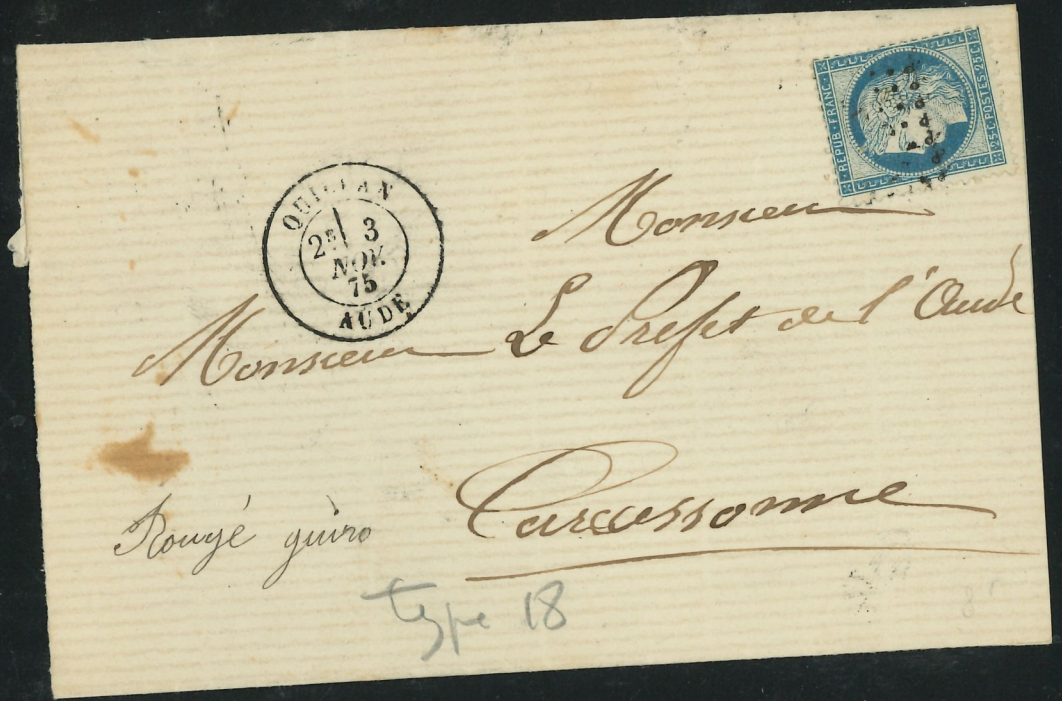 REPUB. FRANC.
25.C.POSTES.25.C.
QUILLAN
2E 3
NOV.
75
AUDE
Monsieur
Monsieur Le Préfet de l'Aude
Carcassonne
Rougé guiro
type 18